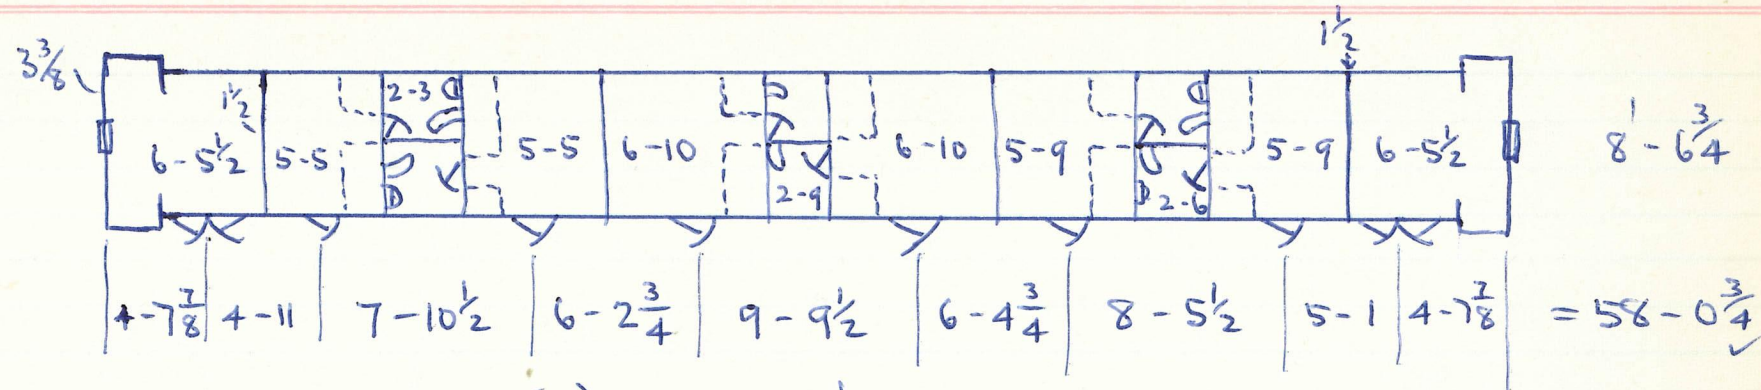 1½
3⅜
2-3
1½
6-5½ 5-5 5-5 6-10 6-10 5-9 5-9 6-5½ 8'-6¾
2-9 2-6
4-7⅞ 4-11 7-10½ 6-2¾ 9-9½ 6-4¾ 8-5½ 5-1 4-7⅞ = 58-0¾ ✓